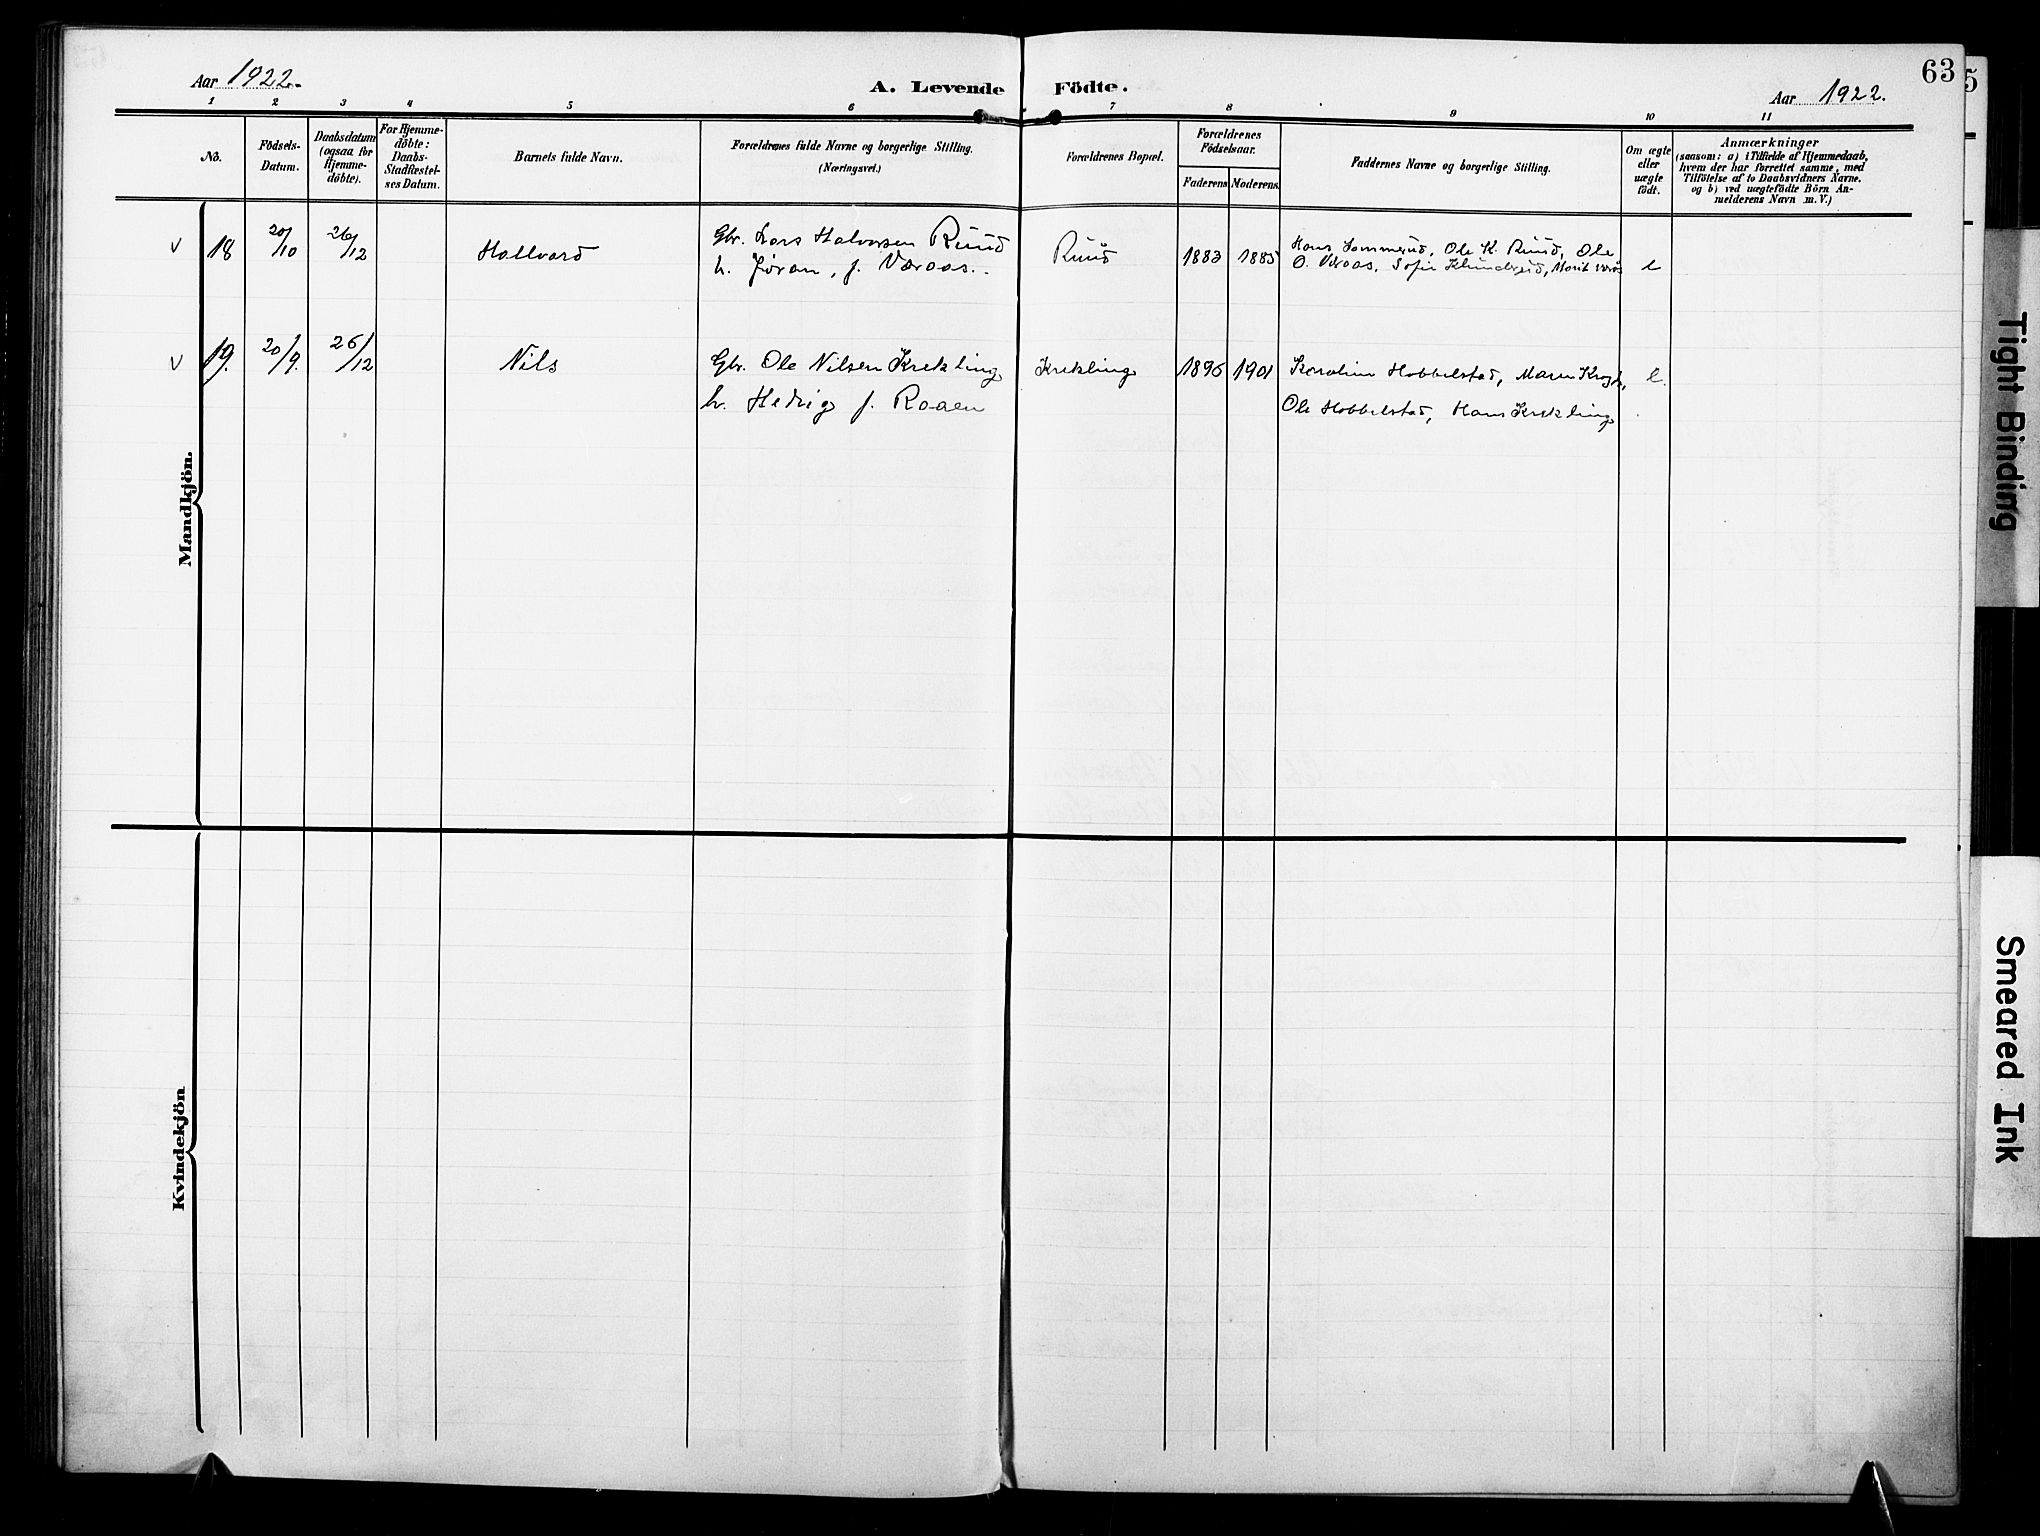 63
5
Aar 1922.-
A. Levende Födte.
Aar 1922.
1 2 3 4 5 6 7 8 9 10 11
No.
Födsels-
Datum.
Daabsdatum
(ogsaa for
Hjemme-
döbte).
For Hjemme-
döbte:
Daabs-
Stadfæstel-
ses Datum.
Barnets fulde Navn.
Forældrenes fulde Navne og borgerlige Stilling.
(Næringsvei.)
Forældrenes Bopæl.
Forældrenes
Födselsaar.
Faderens Moderens
Faddernes Navne og borgerlige Stilling.
Om ægte
eller
uægte
födt.
Anmærkninger
(saasom: a) i Tilfælde af Hjemmedaab,
hvem der har forrettet samme, med
Tilföielse af to Daabsvidners Navne.
og b) ved uægtefödte Börn An-
melderens Navn m. V.)
Mandkjön.
v 18 20/10 26/12 Hallvard Gbr. Lars Halvorsen Ruud Ruud 1883 1885 Hans Sommerud, Ole K. Ruud, Ole e
h. Jøran, f. Væraas.. O. Væraas, Sofie Marit
v 19. 20/9. 26/12 Nils Gbr. Ole Nilsen Krekling Krekling 1896 1901 Karoline Hobbelstad, Maren e.
h. Hedvig f. Raaen Ole Hobbelstad, Hans Krekling
Kvindekjön
Tight Binding
Smeared Ink